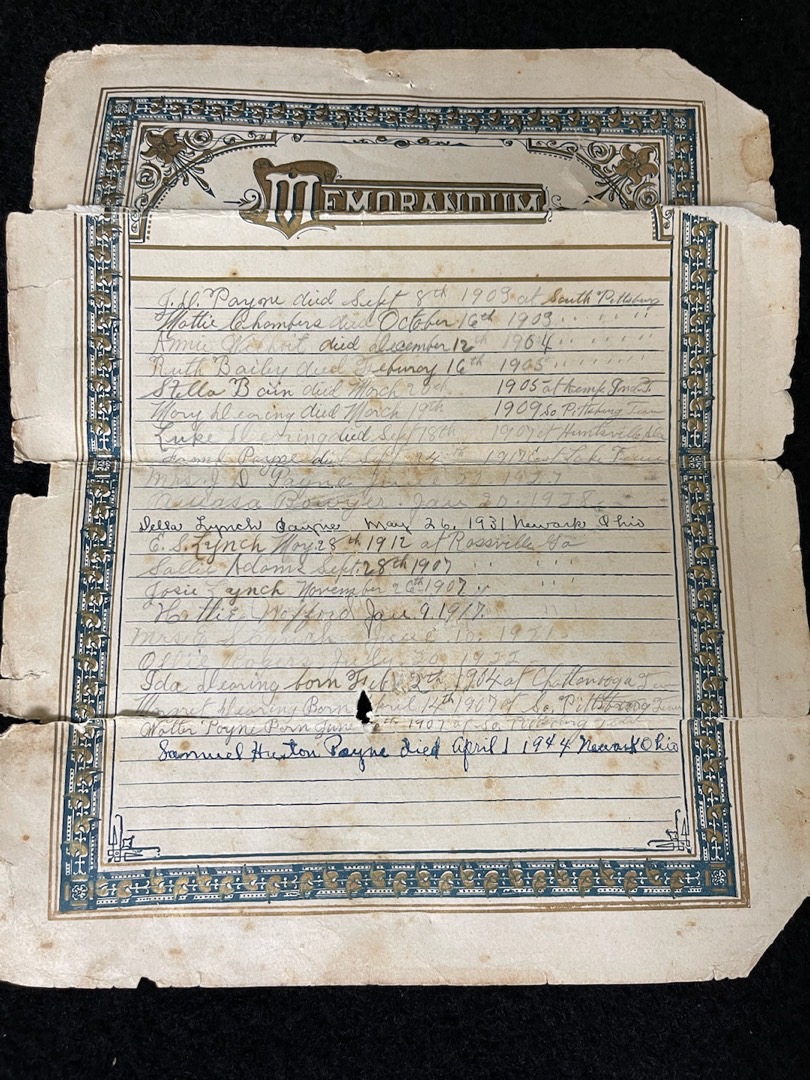 MEMORANDUM
J. D. Payne died Sept 8th 1903 at South Pittsburg
Mattie Chambers died October 16th 1903 " " " "
Annie died December 12th 1904 " " " "
Ruth Bailey died Feburay 16th 1905 " " " "
Stella Bain died March 1905 at
Mary Dearing died March 19th 1909 So Pittsburg Tenn
Luke Dearing died Sept 18th 1907 at Huntsville Ala
Frank Payne died Sept 24th 1917 East Lake Tenn
Mrs J D Payne June 23 1927
Bowyer Jan 20, 1928
Della Lynch Payne May 26, 1931 Newark Ohio
E. S. Lynch Nov 28th 1912 at Rossville Ga
Sallie Adams Sept. 28th 1907 " " "
Josie Lynch November 26th 1907 "
Hattie Wofford Jan 9 1917.
Mrs E S 10, 1921
Ossie Rogers July 30 1922
Ida Dearing born Feb 2th 1904 at Chattanooga Tenn
Dearing Born April 14th 1907 at So. Pittsburg Tenn
Walter Payne Born June th 1907 at So. Pittsburg Tenn
Samuel Huston Payne died April 1 1944 Newark Ohio